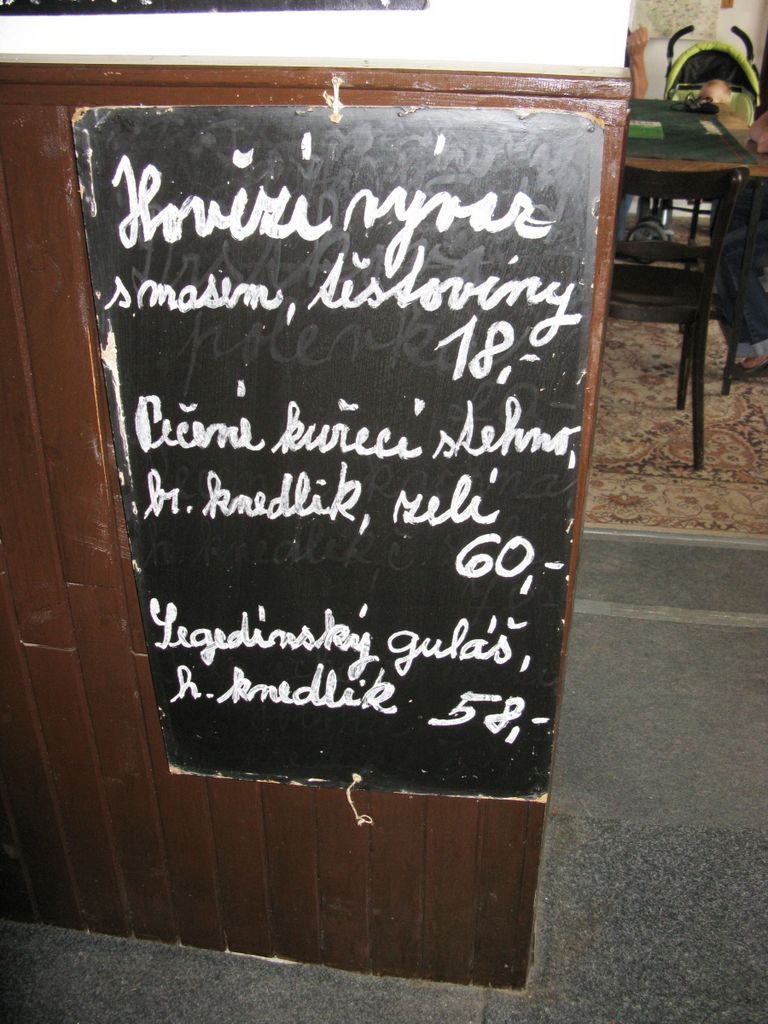 Hovězí vývar
s masem, těstoviny
18,-
Pečené kuřecí stehno,
br. knedlík, zelí
60,-
Segedínský guláš,
h. knedlík 58,-